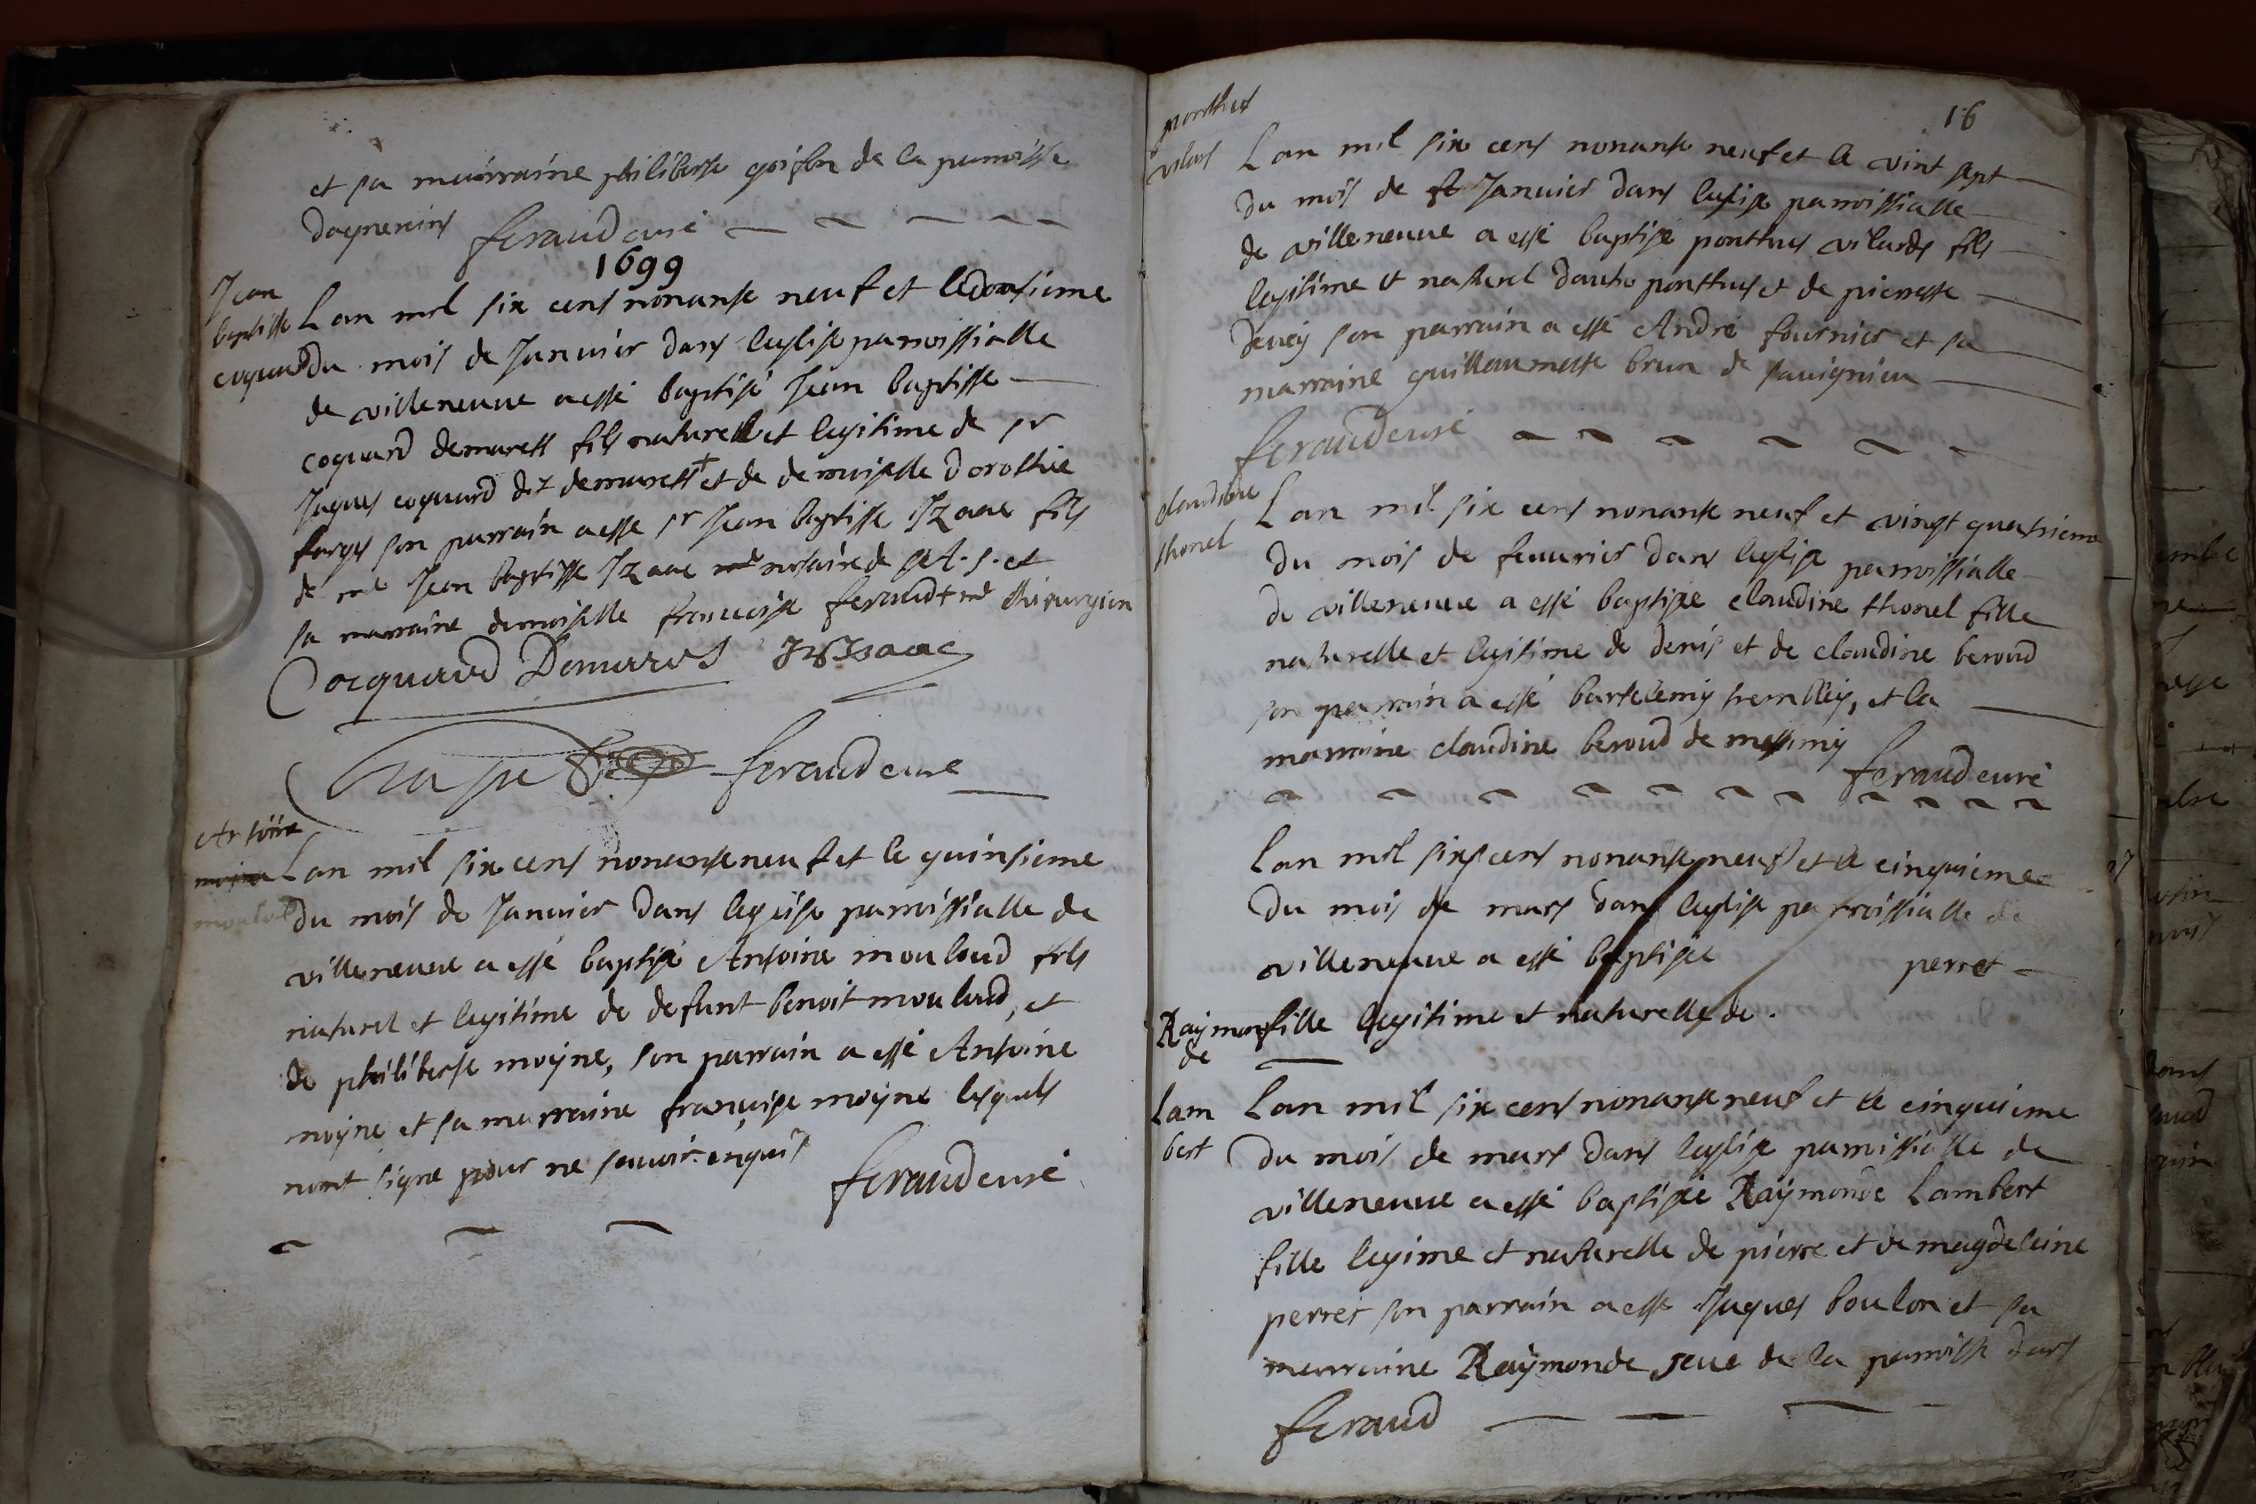 et sa mairraine philiberte de la parroisse
dagnereins feraud curé
1699
Jean
baptiste
coquard
Lan mil six cens nonante neuf et le dousieme
du mois de Janvier dans leglise parroissialle
de villeneuve a esté baptisé Jean baptiste
coquard demarest fils naturell et legitime de sr
Jaques coquard dit demarest + et de demoiselle dorothie
farges son parrain a esté sr Jean baptiste Izaac fils
de me Jean baptiste Izaac notaire de S.A.S. et
sa marraine demoiselle francoise feraud + me chirurgien
Cocquard Demares JB Isaac
feraud curé
Antoine
moulod
Lan mil six cens nonante neuf et le quinsieme
du mois de Janvier dans legise parroissialle de
villeneuve a esté baptisé Antoine mouloud fils
naturel et legitime de defunt benoit mouloud, et
de philiberte moyne, son parrain a esté Antoine
moyne et sa marraine françoise moyne lesquels
nont signe pour ne scavoir enquis
feraud curé
16
ponthus
vilars
Lan mil six cens nonante neuf et le vint sept
du mois de Janvier dans leglise parroissialle
de villeneuve a esté baptisé ponthus vilards fils
legitime et naturel dautre ponthus et de pierrette
son parrain a esté André fournier et sa
marraine guillaumette brun de savignieu
feraud curé
claudine
thonel
Lan mil six cens nonante neuf et vingt quatrieme
du mois de feuvrier dans leglise parroissialle
de villeneuve a esté baptisée claudine thonel fille
naturelle et legitime de denis et de claudine beroud
son parrain a esté bartelemy trembley, et la
marraine claudine beroud de messimy
feraud curé
Lan mil six cens nonante neuf et le cinquieme
du mois de mars dans leglise parroissialle de
villeneuve a esté baptisée perret
fille legitime et naturelle de
Raymon
de
Lam
bert
Lan mil six cens nonante neuf et le cinquieme
du mois de mars dans leglise parroissialle de
villeneuve a esté baptisée Raymonde Lambert
fille legime et naturelle de pierre et de magdeleine
perret son parrain a esté Jaques boulon et sa
marraine Raymonde seve de la parroisse dars
feraud